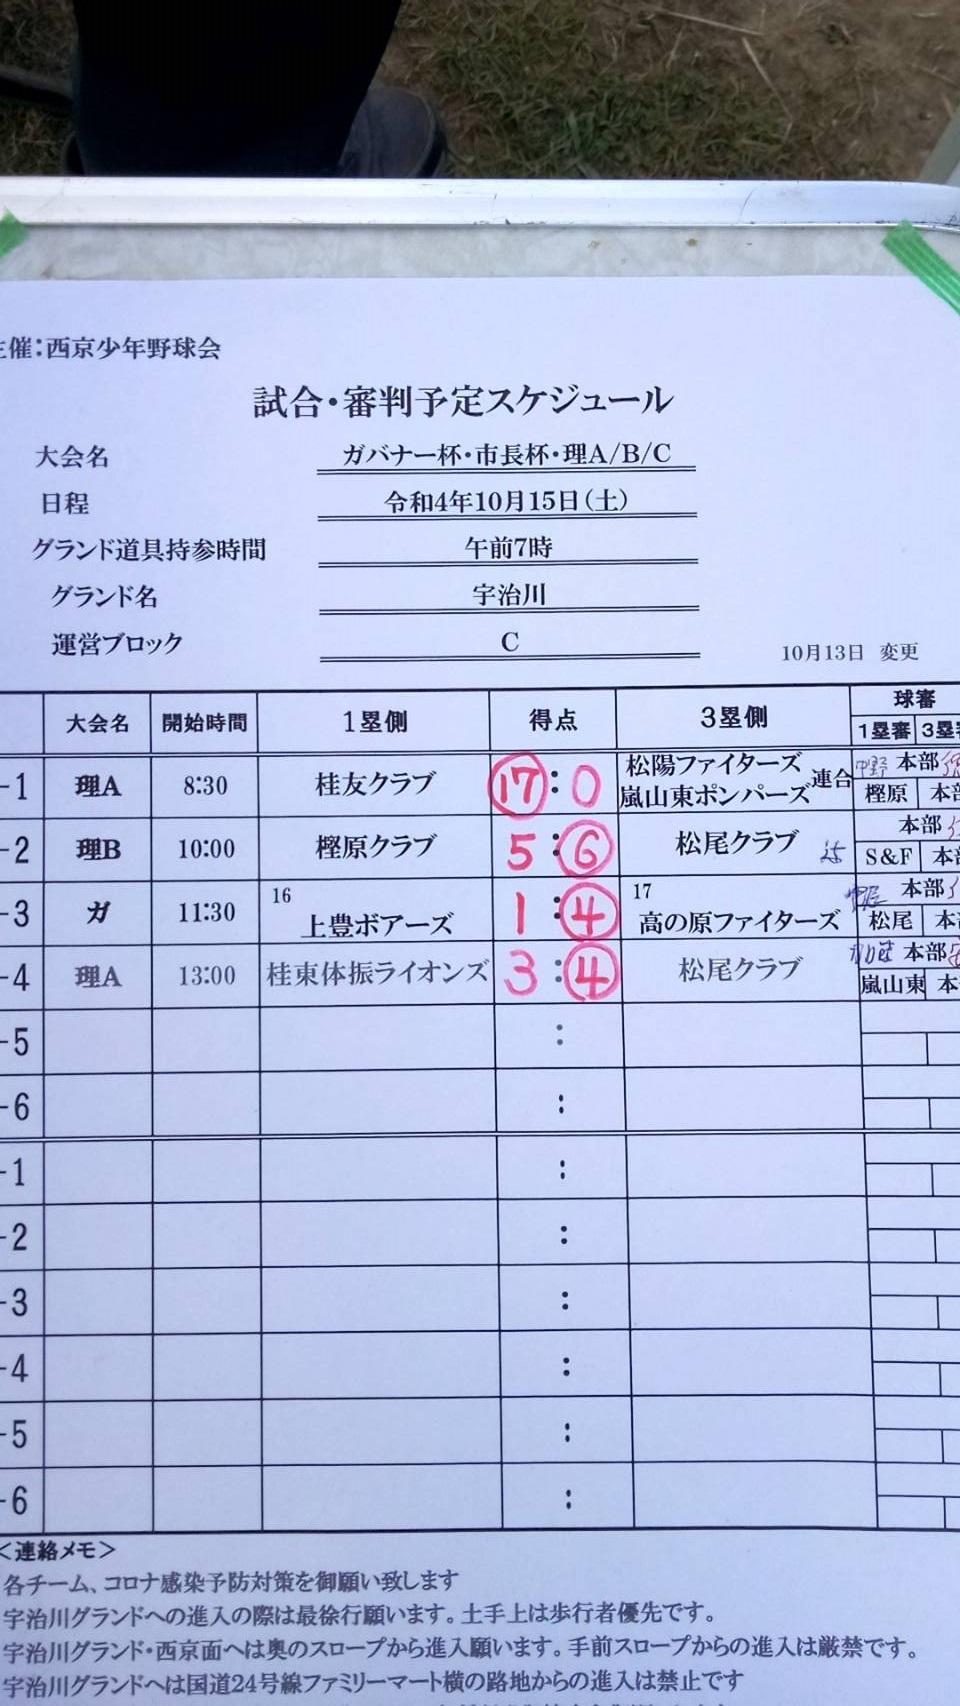 主催:西京少年野球会
試合・審判予定スケジュール
大会名 ガバナー杯・市長杯・理A/B/C
日程 令和4年10月15日(土)
グランド道具持参時間 午前7時
グランド名 宇治川
運営ブロック C
10月13日 変更
大会名 開始時間 1塁側 得点 3塁側 球審
1塁審 3塁審
-1 理A 8:30 桂友クラブ 17:0 松陽ファイターズ 嵐山東ボンバーズ 連合 中野 本部
樫原 本部
-2 理B 10:00 樫原クラブ 5:6 松尾クラブ 本部
S&F 本部
-3 ガ 11:30 16 上豊ボアーズ 1:4 17 高の原ファイターズ 本部
松尾 本部
-4 理A 13:00 桂東体振ライオンズ 3:4 松尾クラブ 本部
嵐山東 本部
-5 :
-6 :
-1 :
-2 :
-3 :
-4 :
-5 :
-6 :
<連絡メモ>
各チーム、コロナ感染予防対策を御願い致します
宇治川グランドへの進入の際は最徐行願います。土手上は歩行者優先です。
宇治川グランド・西京面へは奥のスロープから進入願います。手前スロープからの進入は厳禁です。
宇治川グランドへは国道24号線ファミリーマート横の路地からの進入は禁止です